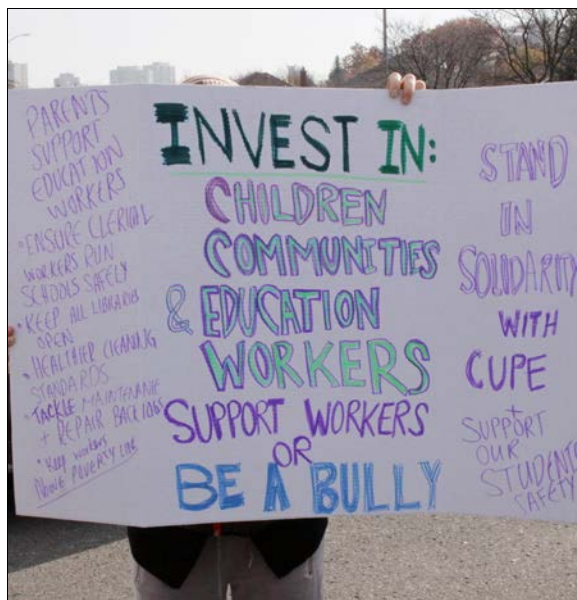 PARENTS
SUPPORT
EDUCATION
WORKERS
• ENSURE CLERICAL
WORKERS RUN
SCHOOLS SAFELY
• KEEP ALL LIBRARIES
OPEN
• HEALTHIER CLEANING
STANDARDS
• TACKLE MAINTENANCE
+ REPAIR BACKLOGS
• Keep workers
Above POVERTY LINE
INVEST IN:
CHILDREN
COMMUNITIES
& EDUCATION
WORKERS
SUPPORT WORKERS
OR
BE A BULLY
STAND
IN
SOLIDARITY
WITH
CUPE
+
SUPPORT
OUR
STUDENTS
SAFETY